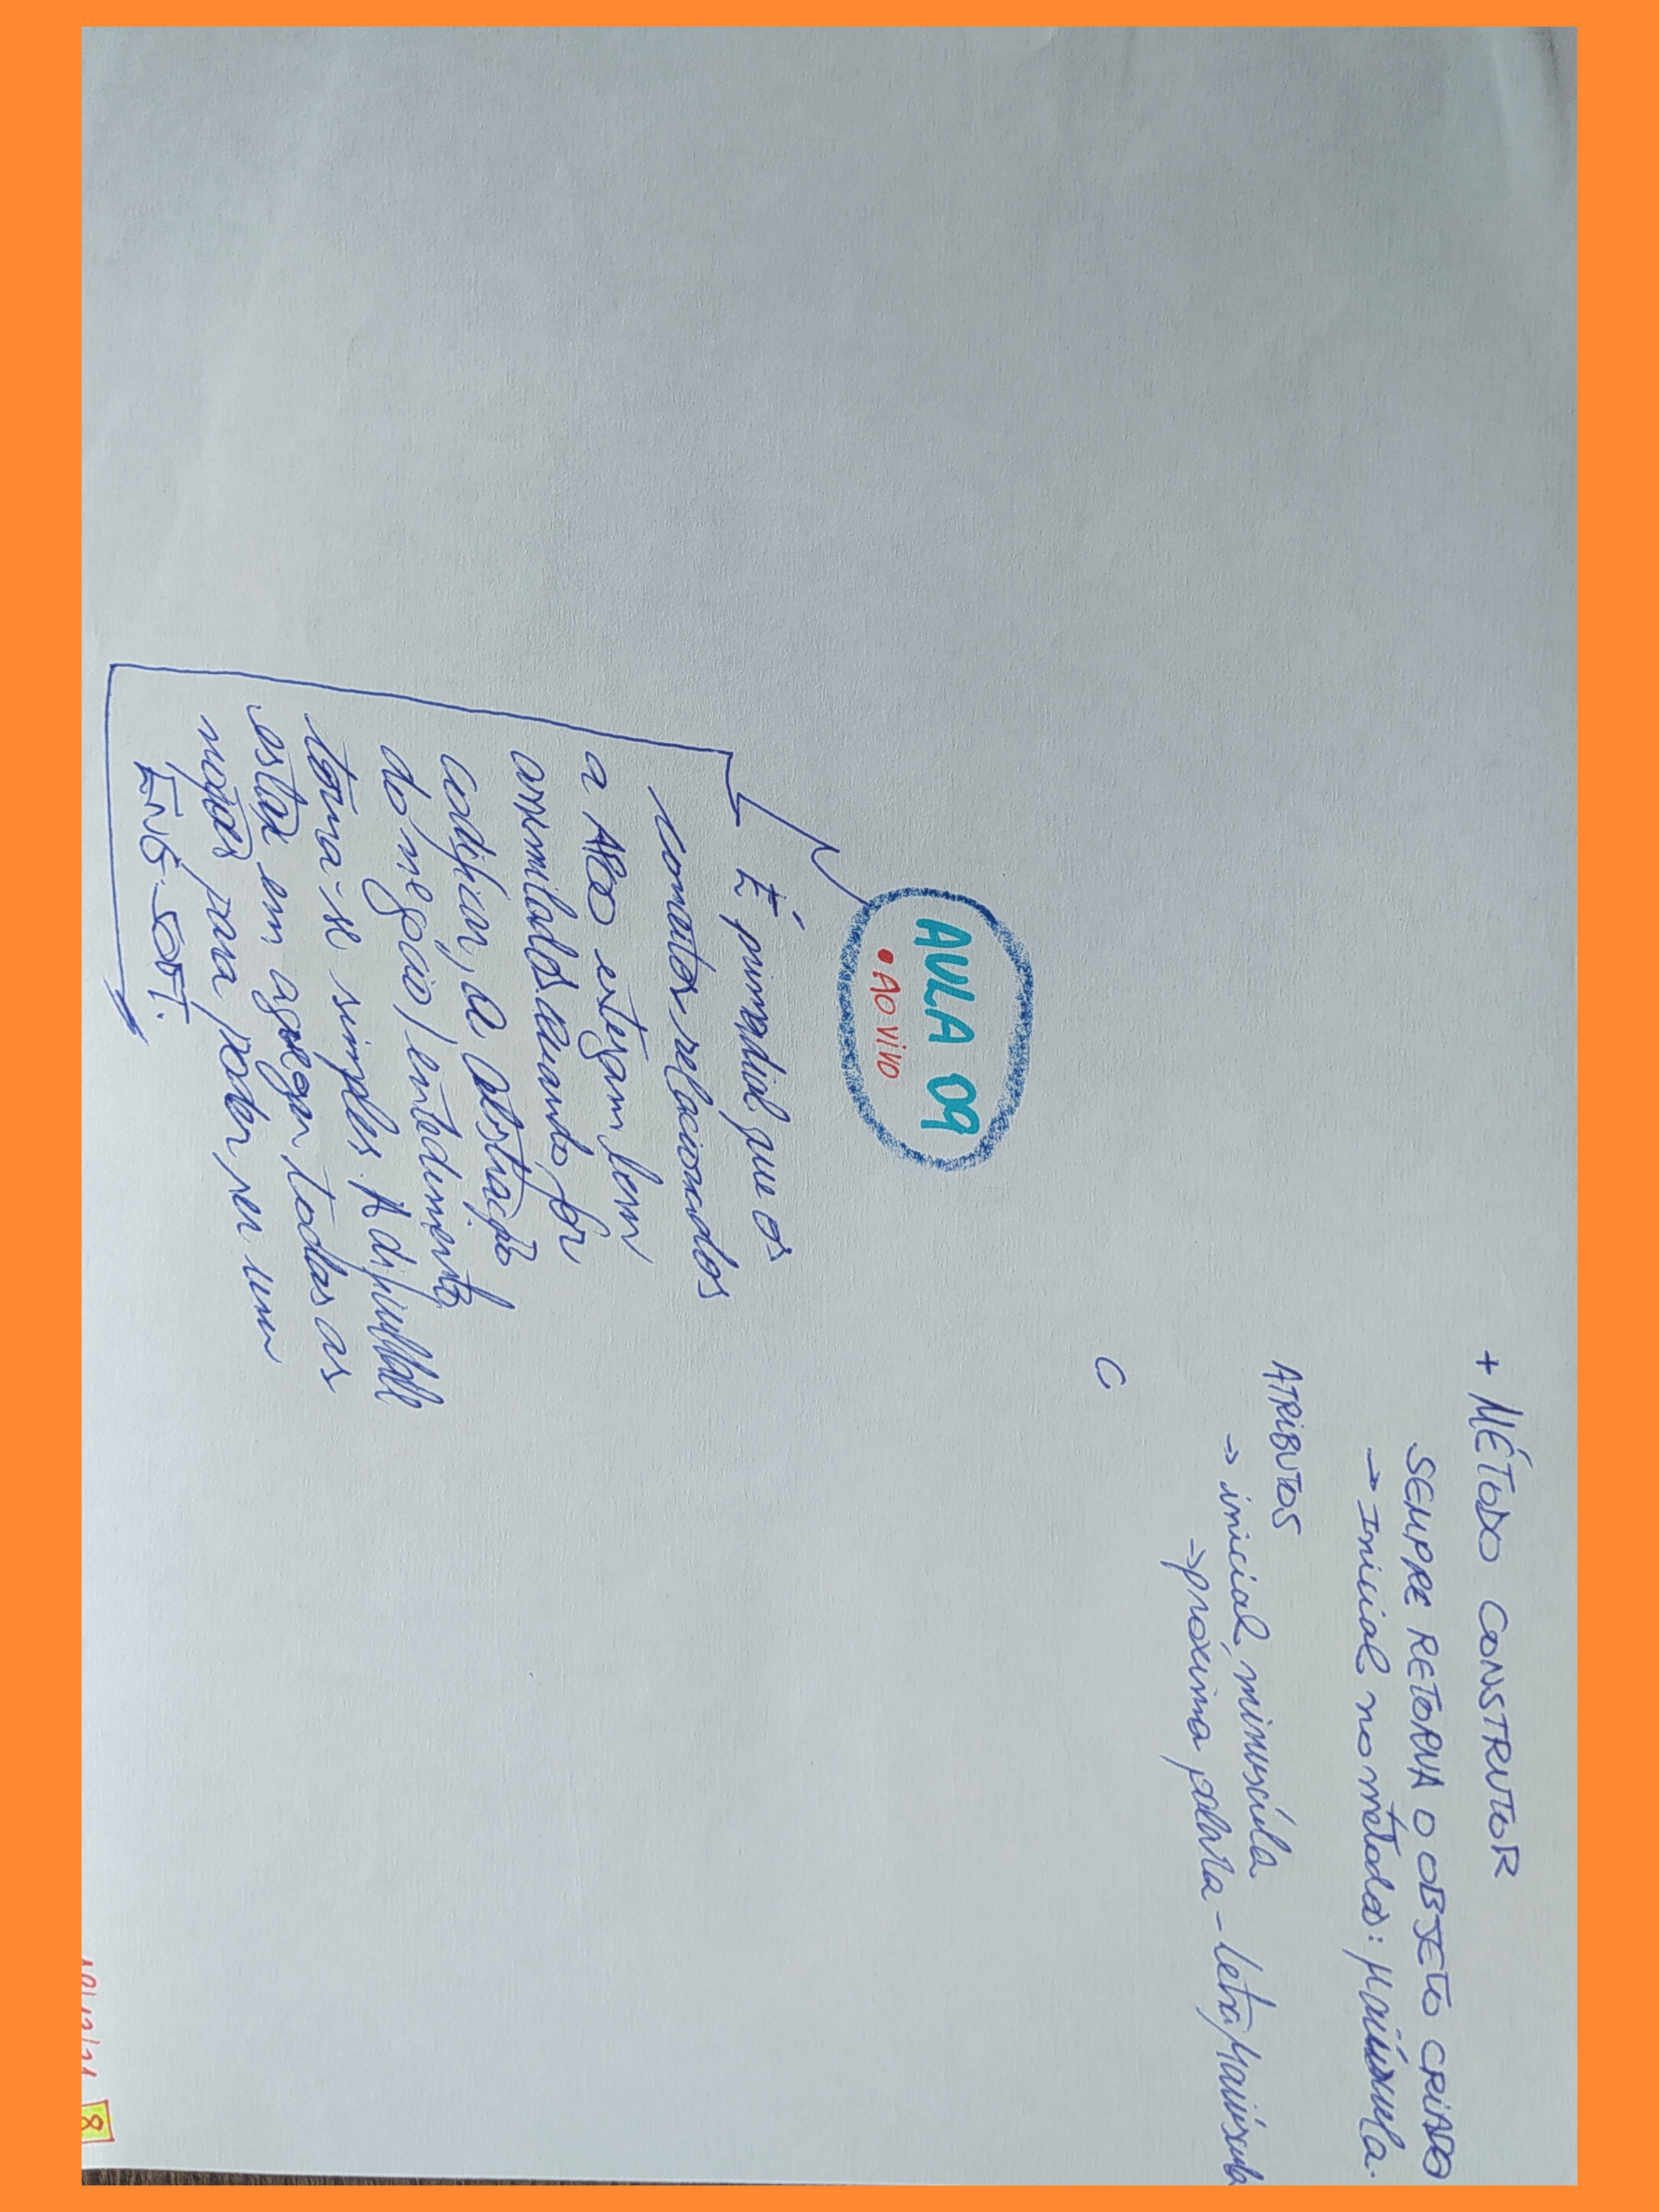 + MÉTODO CONSTRUTOR
SEMPRE RETORNA O OBJETO CRIADO
→ Inicial no método: Maiúscula.
ATRIBUTOS
→ inicial minuscúla
→ próxima palavra - Letra Maiúscula
C
AULA 09
• AO VIVO
É primordial que os
conceitos relacionados
a APOO estejam bem
assimilados. Quando for
codificar, a abstração
do negócio/entedimento
torna-se simples. A dificuldade
estar em agregar todas as
noções para poder ser um
ENG. SOFT.
8